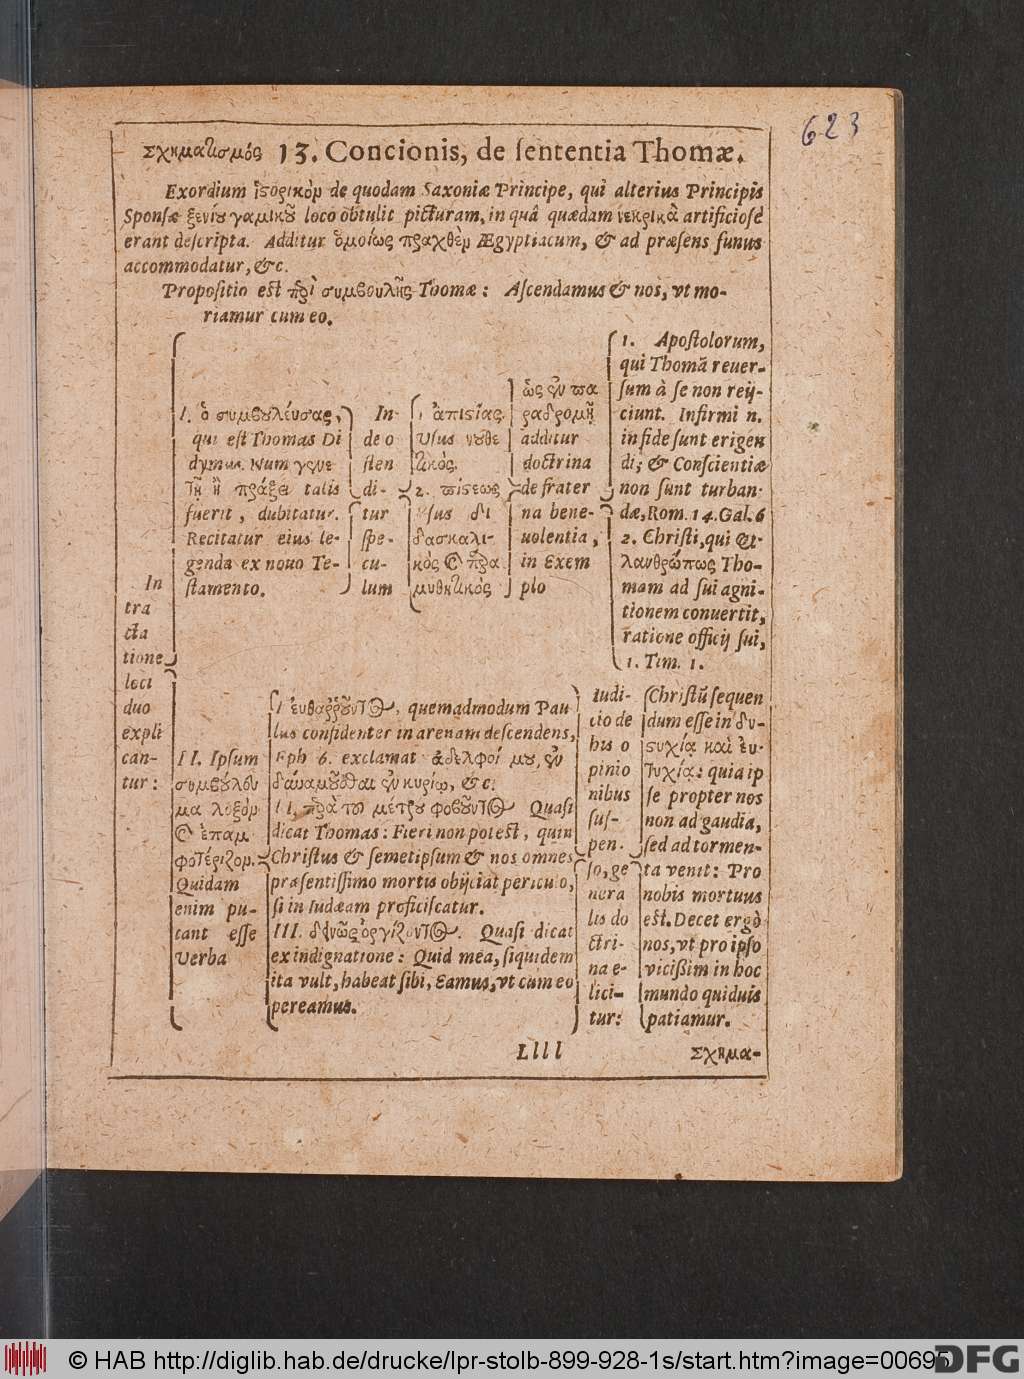 623
Σχηματισμός 13. Concionis, de ſententia Thomæ.
Exordium ἱςορικὸν de quodam Saxoniæ Principe, qui alterius Principis
Sponſæ ξενίου γαμικοῦ loco obtulit picturam, in quâ quædam νεκρικὰ artificioſè
erant deſcripta. Additur ὁμοίως πραχθὲν Ægyptiacum, & ad præſens funus
accommodatur, &c.
Propoſitio eſt περὶ συμβουλῆς Thomæ: Aſcendamus & nos, vt mo-
riamur cum eo.
In
tra
cta
tione
loci
duo
expli
can-
tur:
I. ὁ συμβουλέυσας,
qui eſt Thomas Di
dymus. Num
ἢ πράξει talis
fuerit, dubitatur.
Recitatur eius le-
genda ex nouo Te-
ſtamento.
In-
de o
ſten
di-
tur
ſpe-
cu-
lum
1 ἀπιςίας.
Uſus νουθε
τικός.
2. πίςεως
Uſus δι
δασκαλι-
κός & παρα
μυθητικός
ὡς ἐν πα
ραδρομῇ
additur
doctrina
de frater
na bene-
uolentia,
in Exem
plo
1. Apoſtolorum,
qui Thomā reuer-
ſum à ſe non reij-
ciunt. Infirmi n.
in fide ſunt erigen
di; & Conſcientiæ
non ſunt turban-
dæ, Rom. 14. Gal. 6
2. Chriſti, qui φι-
λανθρώπως Tho-
mam ad ſui agni-
tionem conuertit,
ratione officij ſui,
1. Tim. 1.
II. Ipſum
συμβούλου
μα λοξὸν
& ἐπαμ
φοτέριζον.
Quidam
enim pu-
tant eſſe
Verba
I ἐυθαῤῥοῦντος, quemadmodum Pau
lus confidenter in arenam deſcendens,
Eph 6. exclamat ἀδελφοί μου, ἐν
δυναμοῦσθαι ἐν κυρίῳ, &c.
II, παρὰ τοῦ μέτρου φοβοῦντος Quaſi
dicat Thomas: Fieri non poteſt, quin
Chriſtus & ſemetipſum & nos omnes
præſentiſſimo mortis obijciat periculo,
ſi in Iudæam proficiſcatur.
III. δεινῶς ὀργίζοντος. Quaſi dicat
ex indignatione: Quid mea, ſiquidem
ita vult, habeat ſibi, Eamus, vt cum eo
pereamus.
Iudi-
cio de
his o
pinio
nibus
ſuſ-
pen-
ſo, ge
nera
lis do
ctri-
na e-
lici-
tur:
Chriſtū ſequen
dum eſſe in δυ-
ςυχίᾳ καὶ ἐυ-
τυχίᾳ: quia ip
ſe propter nos
non ad gaudia,
ſed ad tormen-
ta venit: Pro
nobis mortuus
eſt. Decet ergò
nos, vt pro ipſo
viciſſim in hoc
mundo quiduis
patiamur.
Llll
Σχημα-
© HAB http://diglib.hab.de/drucke/lpr-stolb-899-928-1s/start.htm?image=00695
DFG